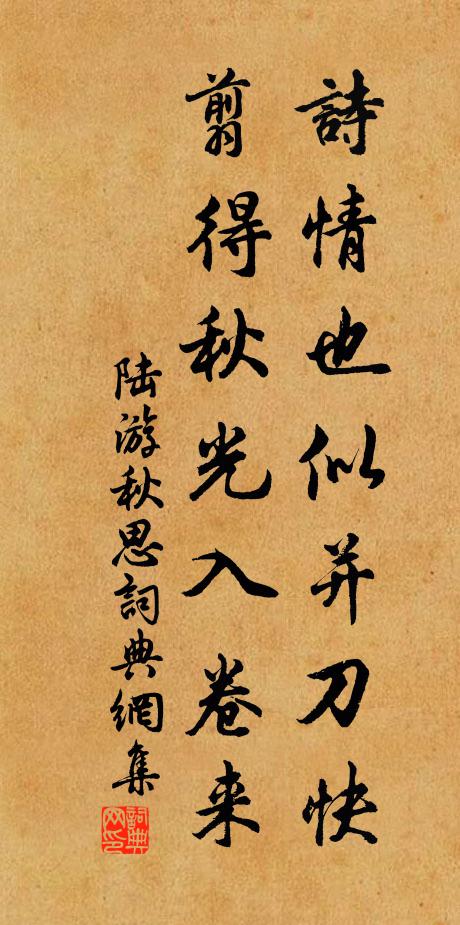 詩情也似并刀快
翦得秋光入卷来
陆游秋思詞典網集
詞典网印